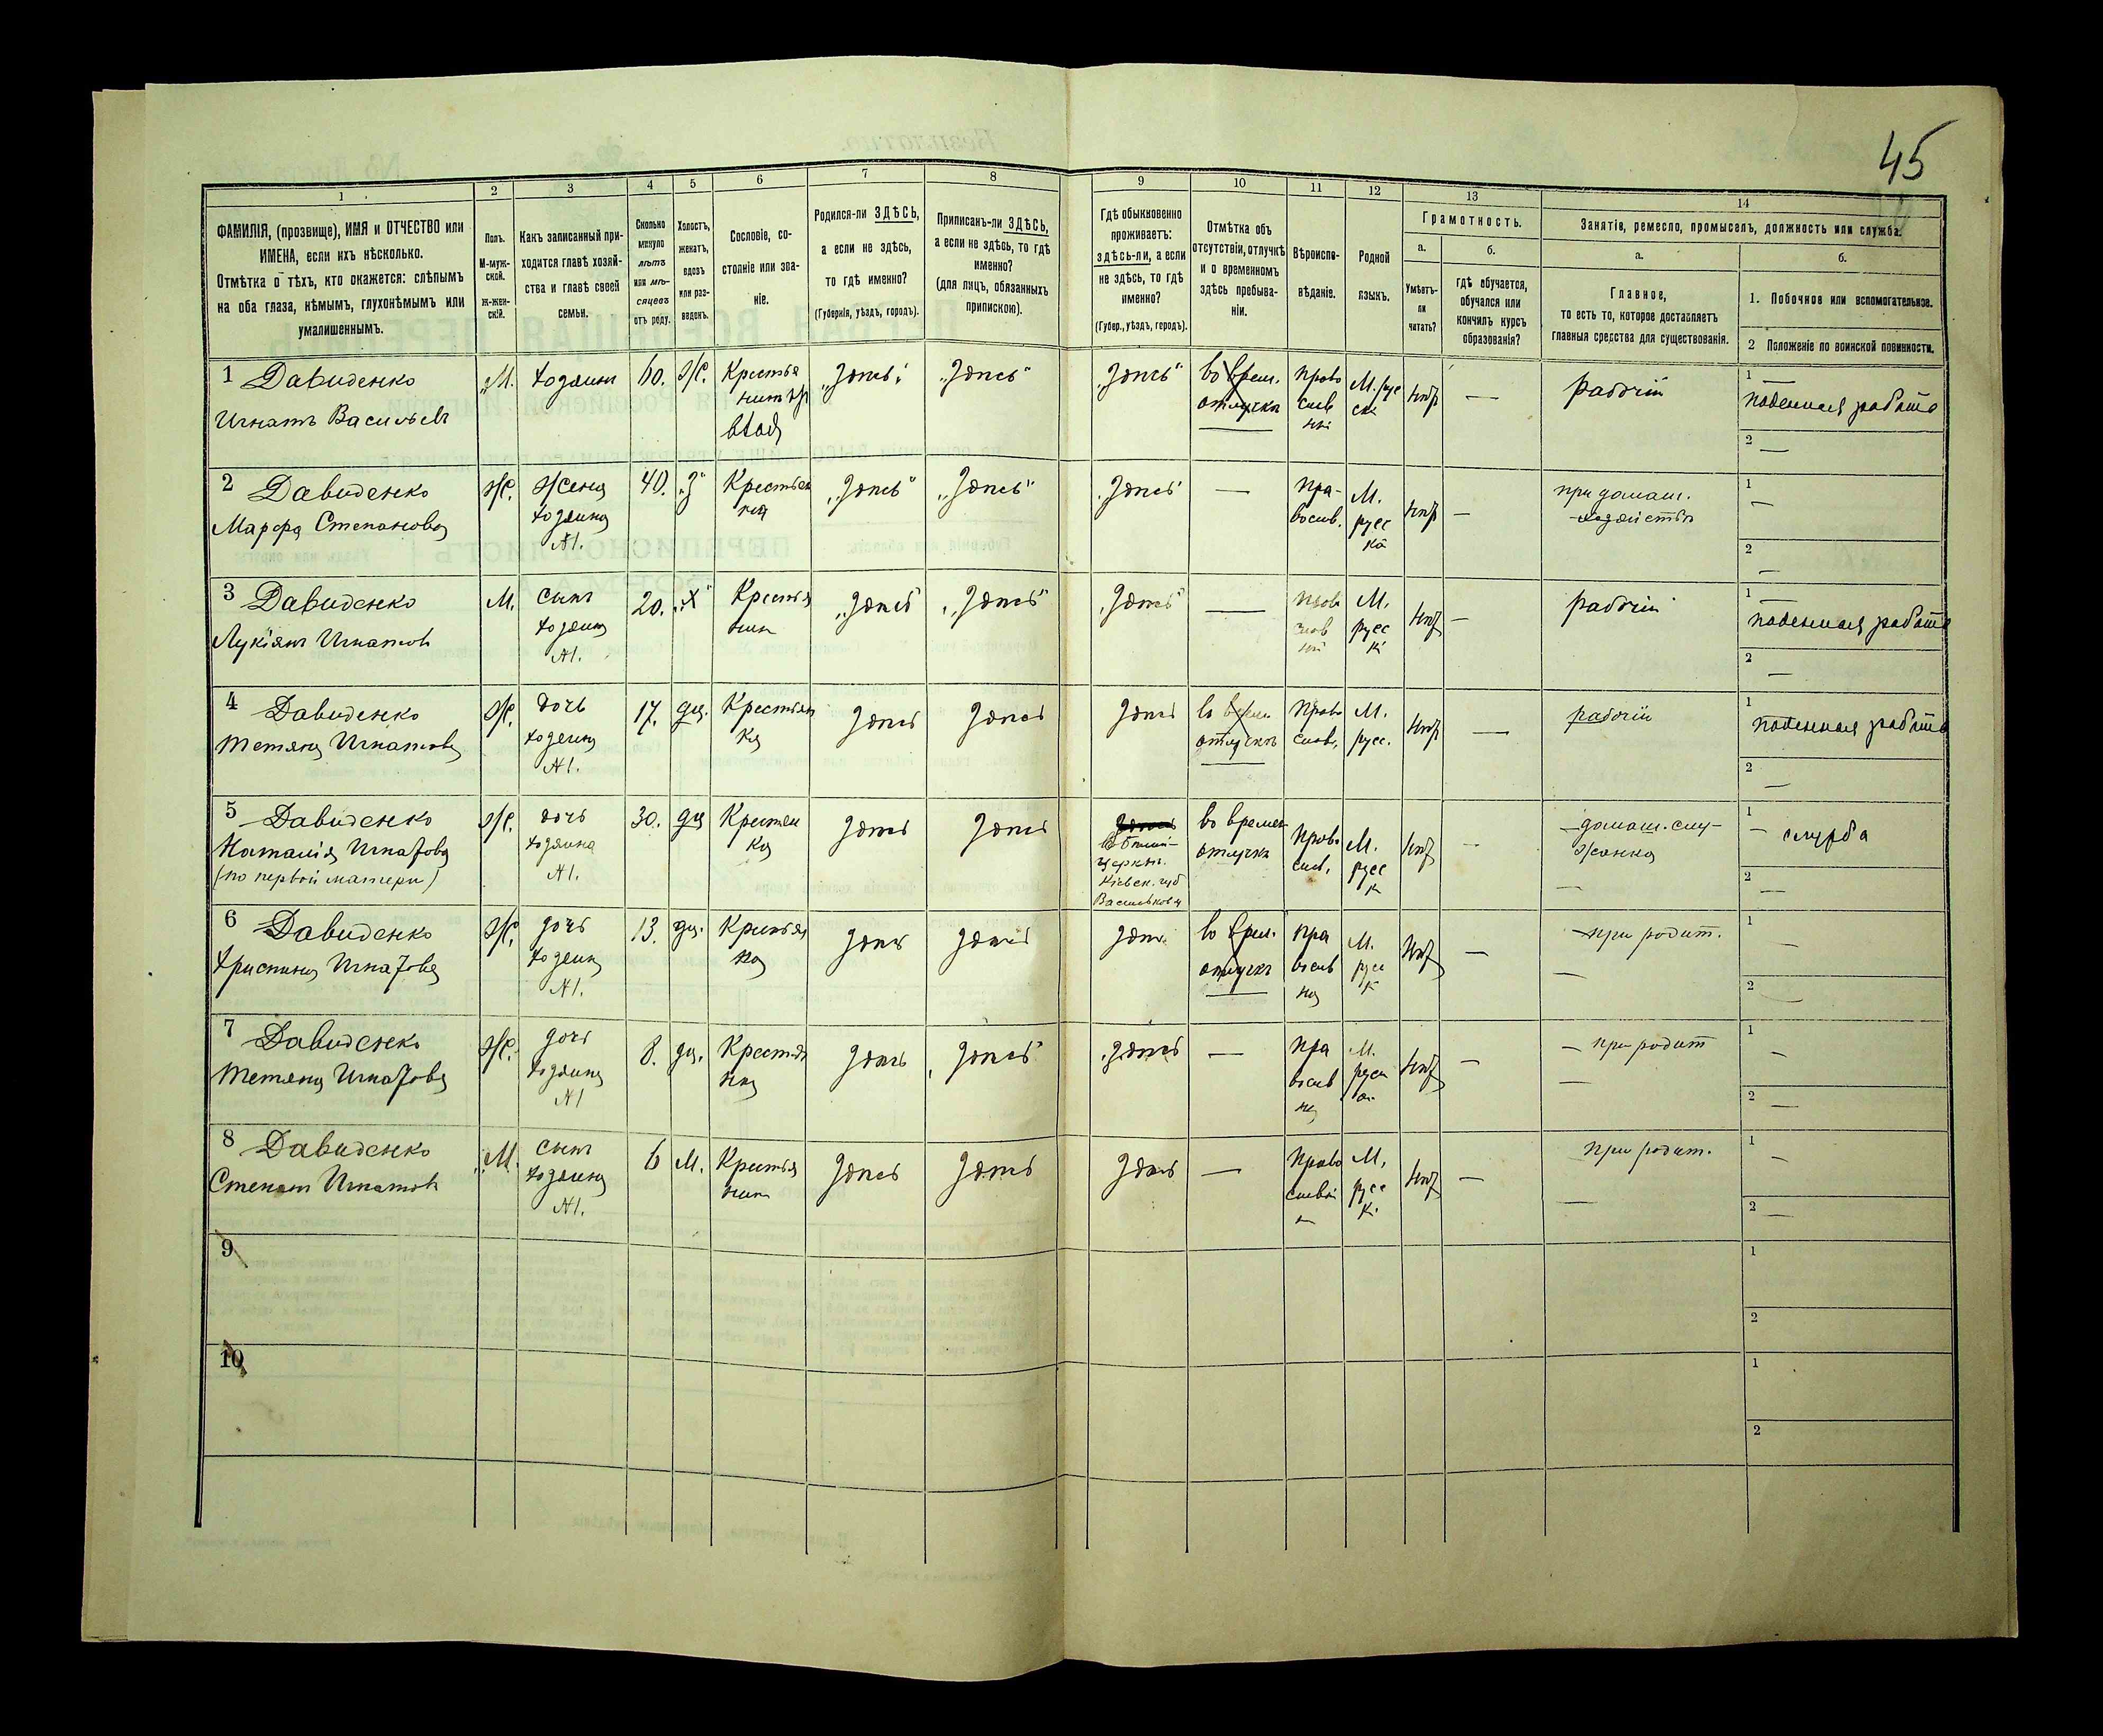 45
1 2 3 4 5 6 7 8 9 10 11 12 13 14
ФАМИЛІЯ, (прозвище), ИМЯ и ОТЧЕСТВО или
ИМЕНА, если ихъ нѣсколько.
Отмѣтка о тѣхъ, кто окажется: слѣпымъ
на оба глаза, нѣмымъ, глухонѣмымъ или
умалишеннымъ.
Полъ.
М-муж-
ской.
Ж-жен-
скій.
Какъ записанный при-
ходится главѣ хозяй-
ства и главѣ своей
семьи.
Сколько
минуло
лѣтъ
или мѣ-
сяцевъ
отъ роду.
Холостъ,
женатъ,
вдовъ
или раз-
веденъ.
Сословіе, со-
стояніе или зва-
ніе.
Родился-ли ЗДѢСЬ,
а если не здѣсь,
то гдѣ именно?
(Губернія, уѣздъ, городъ).
Приписанъ-ли ЗДѢСЬ,
а если не здѣсь, то гдѣ
именно?
(для лицъ, обязанныхъ
припискою).
Гдѣ обыкновенно
проживаетъ:
здѣсь-ли, а если
не здѣсь, то гдѣ
именно?
(Губер., уѣздъ, городъ).
Отмѣтка объ
отсутствіи, отлучкѣ
и о временномъ
здѣсь пребыва-
ніи.
Вѣроиспо-
вѣданіе.
Родной
языкъ.
Грамотность.
а.
Умѣетъ-
ли
читать?
б.
гдѣ обучается,
обучался или
кончилъ курсъ
образованія?
Занятіе, ремесло, промыселъ, должность или служба.
а.
Главное,
то есть то, которое доставляетъ
главныя средства для существованія.
б.
1. Побочное или вспомогательное.
2 Положеніе по воинской повинности.
1 Давиденко
Игнатъ Васильевъ
„М. хозяинъ 60. Ж.
„Здѣсь" „Здѣсь" „Здѣсь"
во врем.
отлучкѣ
рабочій
1 —
поденная работа
2 —
2 Давиденко
Марфа Степанова
Ж.
жена
хозяина
№1.
40. „З"
„Здѣсь" „Здѣсь" „Здѣсь" —
Пра-
вослав.
М.
русс
—
при домаш.
хозяйствѣ
1 —
2 —
3 Давиденко
Лукіянъ Игнатовъ
М.
сынъ
хозяина
№1.
20. „Х"
„Здѣсь" „Здѣсь" „Здѣсь" —
М.
русс
к
—
рабочій
1 —
поденная работа
2 —
4 Давиденко
Тетяна Игнатова
Ж.
дочь
хозяина
№1.
17. дѣв.
Крестьян
ка
Здѣсь Здѣсь Здѣсь
во врем
отлучкѣ
Право
слав.
М.
русс.
—
рабочій
1
поденная работа
2 —
5 Давиденко
Наталія Игнатова
(по первой матери)
Ж.
дочь
хозяина
№1.
30.
Здѣсь Здѣсь
Кіевск. губ
во времен
отлучкѣ
Право
слав.
М.
русс
к
домаш. слу-
жанка
1 — служба
2 —
6 Давиденко
Христина Игнатова
Ж.
дочь
хозяина
№1.
13. дѣв.
Здѣсь Здѣсь
во врем.
отлучкѣ
Пра
вослав
ная
М.
русс
к
—
при родит.
—
1 —
2 —
7 Давиденко
Тетяна Игнатова
Ж.
дочь
хозяина
№1
8. дѣв.
Здѣсь Здѣсь Здѣсь —
Пра
вослав
М.
—
— при родит
—
1 —
2 —
8 Давиденко
Степанъ Игнатовъ
„М.
сынъ
хозяина
№1.
6 М.
Здѣсь Здѣсь Здѣсь —
М.
русс
к.
—
при родит.
—
1 —
2 —
9
1
2
10
1
2